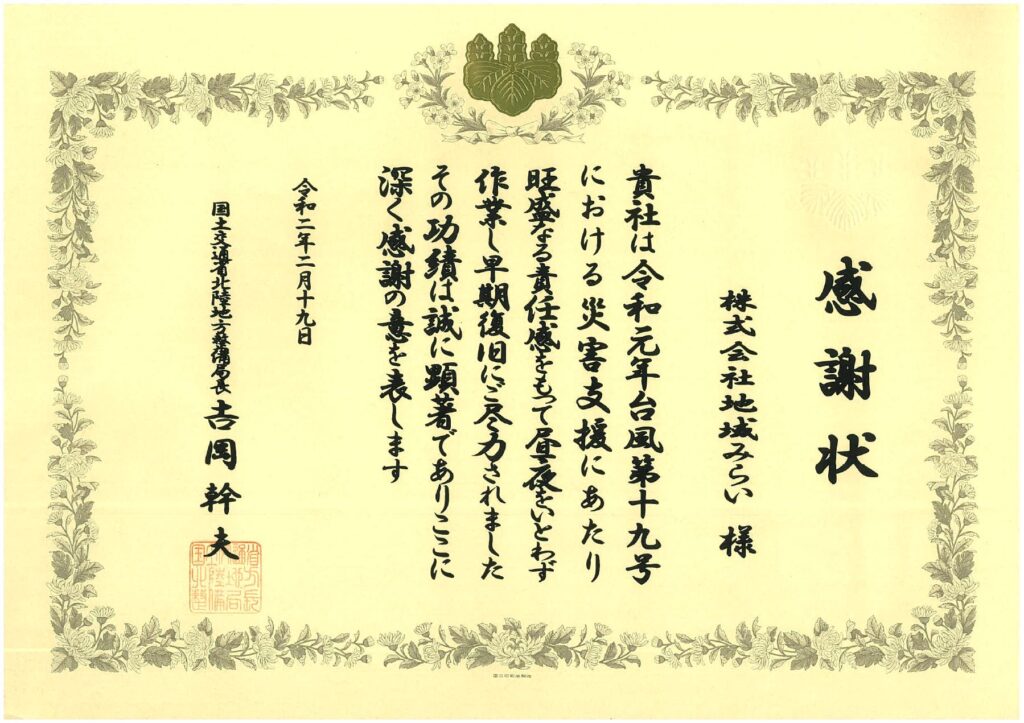 感謝状
株式会社地域みらい 様
貴社は令和元年台風第十九号
における災害支援にあたり
旺盛なる責任感をもって昼夜をいとわず
作業し早期復旧にご尽力されました
その功績は誠に顕著でありここに
深く感謝の意を表します
令和二年二月十九日
国土交通省北陸地方整備局長 吉岡 幹夫